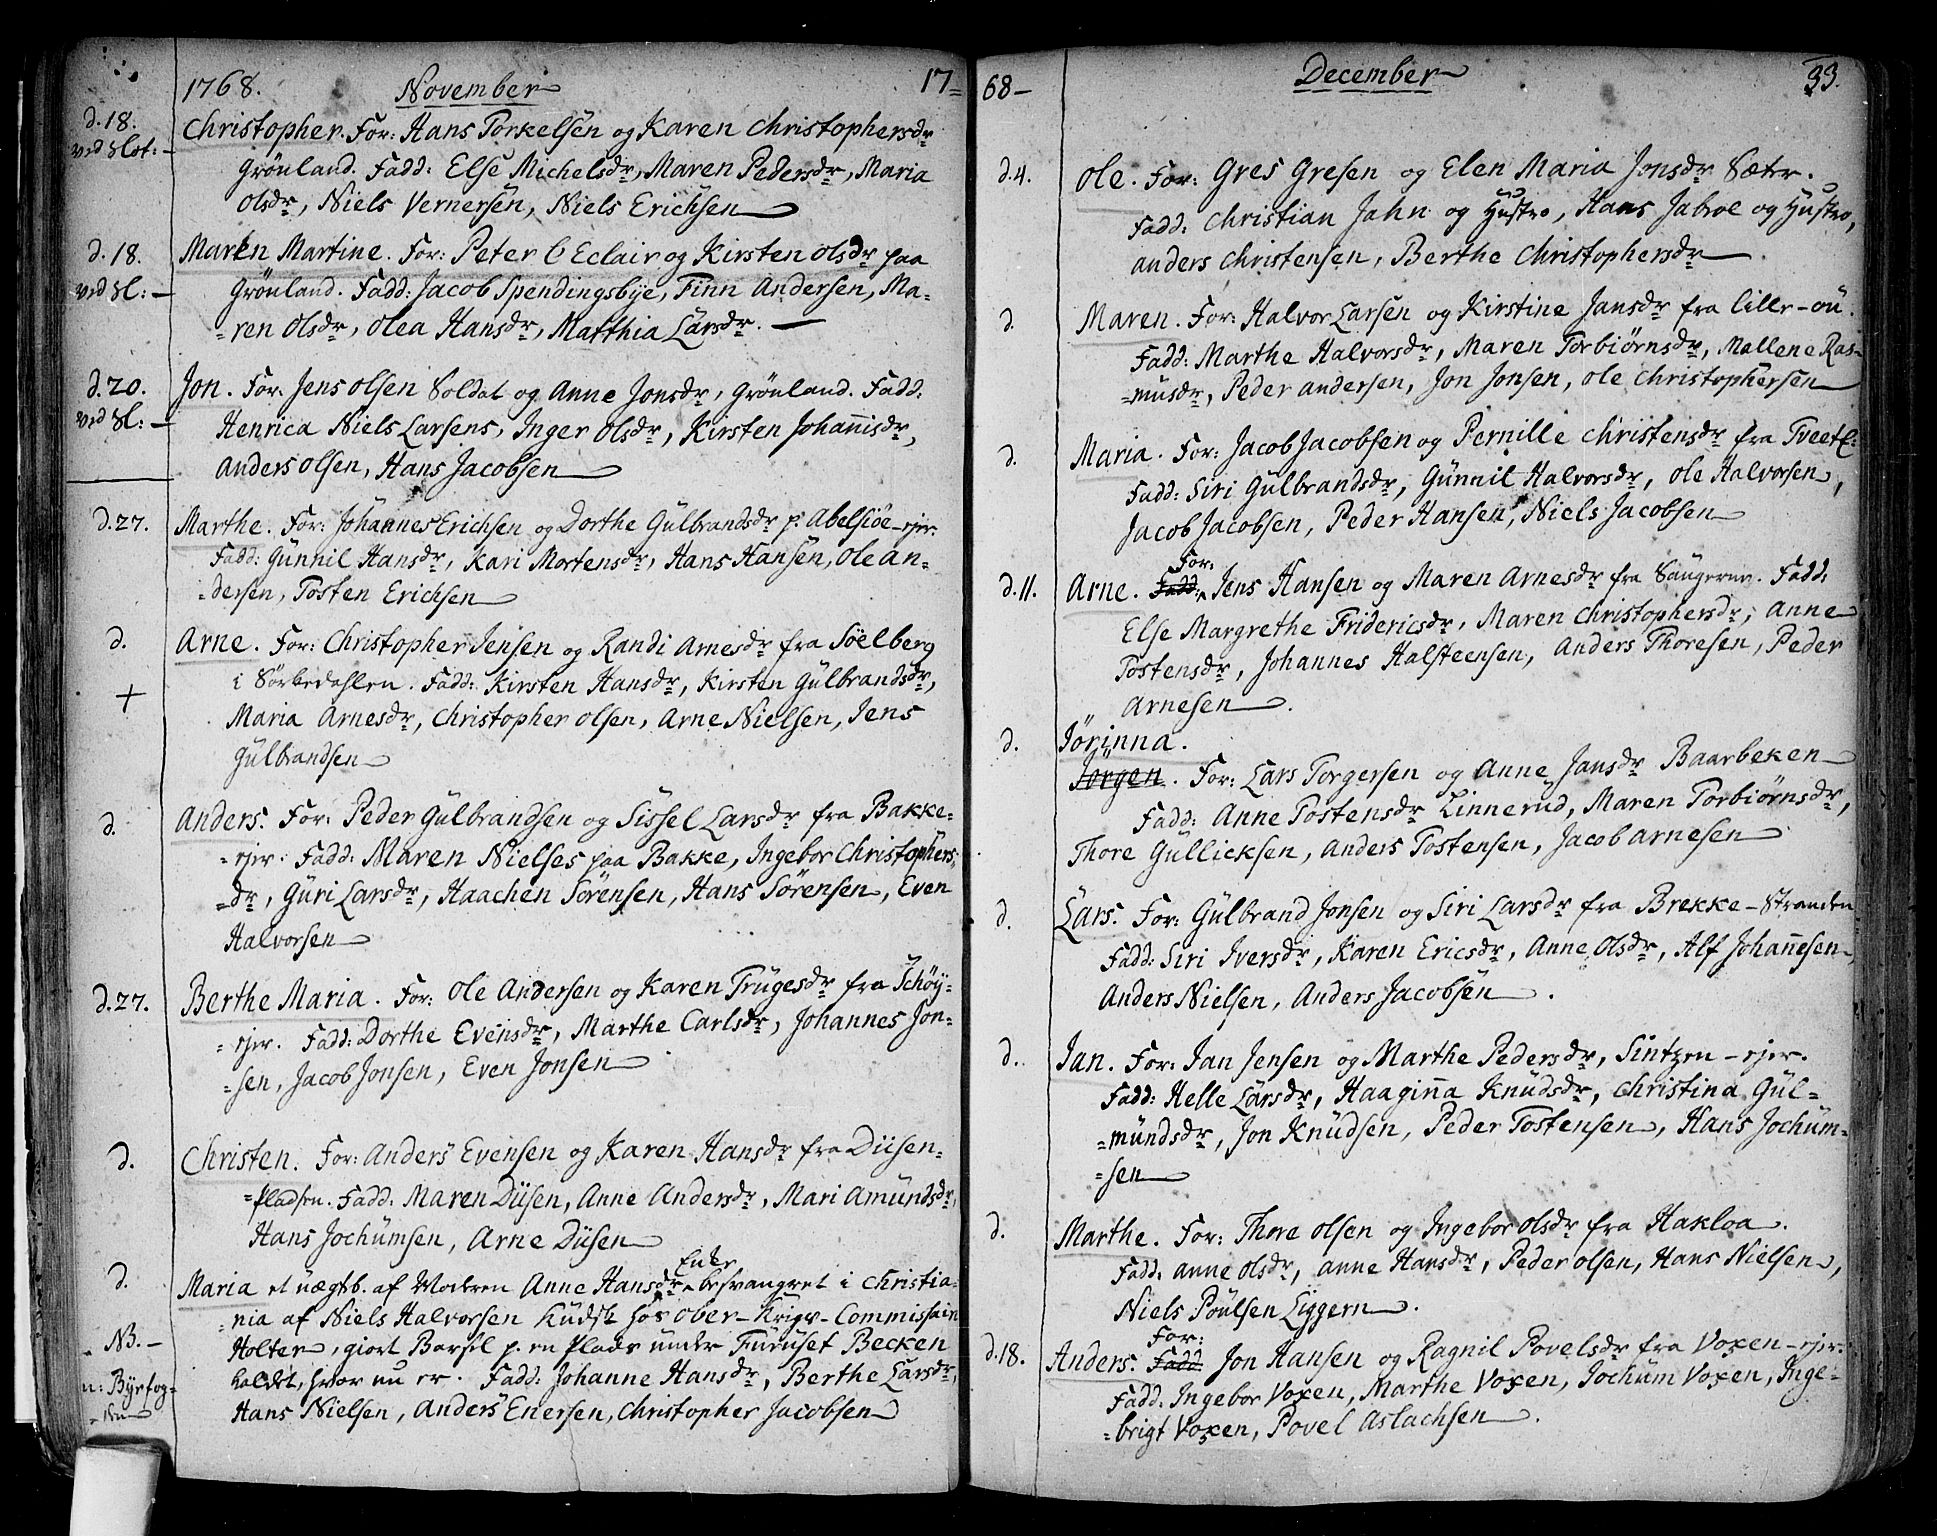 1768. November 17=
d.18. Christopher. For: Hans Torkelsen og Karen Christophersdr
ved Slot: Grönland. Fadd: Else Michelsdr, Maren Pedersdr, Maria
Olsdr, Niels Vernersen, Niels Erichsen
d.18. Maren Martine. For: Peter l'Eclair og Kirsten Olsdr paa
ved Sl: Grönland. Fadd: Jacob Spendingsbye, Finn Andersen, Ma=
=ren Olsdr, Olea Hansdr, Matthia Larsdr.
d.20. Jon. For: Jens Olsen Soldat og Anne Jonsdr, Grönland. Fadd:
ved Sl: Henrica Niels Larsens, Inger Olsdr, Kirsten Johannisdr,
Anders Olsen, Hans Jacobsen
d.27. Marthe. For: Johannes Erichsen og Dorthe Gülbrandsdr p. Abelsiöe-ejer.
Fadd: Günnil Hansdr, Kari Mortensdr, Hans Hansen, Ole An=
=dersen, Tosten Erichsen
d. Arne. For: Christopher Jensen og Randi Arnesdr fra Söelberg
+ i Sörkedahlen. Fadd: Kirsten Hansdr, Kirsten Gülbrandsdr,
Maria Arnesdr, Christopher Olsen, Arne Nielsen, Jens
Gülbrandsen
d. Anders. For: Peder Gülbrandsen og Sissel Larsdr fra Bakke=
=ejer. Fadd: Maren Nielses paa Bakke, Ingebor Christophers=
=dr, Guri Larsdr, Haachen Sörensen, Hans Sörensen, Even
Halvorsen
d.27. Berthe Maria. For: Ole Andersen og Karen Trügesdr fra Schöy=
=ejer. Fadd: Dorthe Evensdr, Marthe Carlsdr, Johannes Jon=
=sen, Jacob Jonsen, Even Jonsen
d. Christen. For: Anders Evensen og Karen Hansdr fra Diisen=
=Pladsen. Fadd: Maren Diisen, Anne Andersdr, Mari Amundsdr,
Hans Jochümsen, Arne Düsen
d. Maria et uægtb. af Moderen Anne Hansdr Enke besvangret i Christia=
=nia af Niels Halvorsen Kudsk hos Ober-Krigs-Commissair
NB. Holter, giort Barsel p. en Plads under Furuset Becken
n: Byefog= kaldet, hvor nu er. Fadd: Johanne Hansdr, Berthe Larsdr,
=den Hans Nielsen, Anders Enersen, Christopher Jacobsen
68 December 33.
d.4. Ole. For: Gres Gresen og Elen Maria Jonsdr Sæter.
Fadd: Christian Jahn og Hustro, Hans Jabroe og Hustro,
Anders Christensen, Berthe Christophersdr
d. Maren. For: Halvor Larsen og Kirstine Jansdr fra Lille-ou.
Fadd: Marthe Halvorsdr, Maren Torbiörnsdr, Mallene Ras=
=musdr, Peder Andersen, Jon Jonsen, Ole Christophersen
d. Maria. For: Jacob Jacobsen og Pernille Christensdr fra Tveete:
Fadd: Siri Gülbrandsdr, Günnil Halvorsdr, Ole Halvorsen,
Jacob Jacobsen, Peder Hansen, Niels Jacobsen
d.11. Arne. Fadd: For: Jens Hansen og Maren Arnesdr fra Saugerne. Fadd:
Else Margrethe Fridericsdr, Maren Christophersdr, Anne
Tostensdr, Johannes Halsteensen, Anders Thoresen, Peder
Arnesen.
d. Jörinna.
Jörgen. For: Lars Torgersen og Anne Jansdr Baarbeken
Fadd: Anne Tostensdr Linnerud, Maren Torbiörnsdr,
Thore Gullicksen, Anders Tostensen, Jacob Arnesen
d. Lars. For: Gülbrand Jonsen og Siri Larsdr fra Brekke-Stranden
Fadd: Siri Iversdr, Karen Ericsdr, Anne Olsdr, Alf Johannesen,
Anders Nielsen, Anders Jacobsen.
d. Jan. For: Jan Jensen og Marthe Pedersdr, Sintzen-ejer.
Fadd: Helle Larsdr, Haaginna Knudsdr, Christina Gül=
=mündsdr, Jon Knüdsen, Peder Tostensen, Hans Jochüm=
=sen
d. Marthe. For: Thore Olsen og Ingebor Olsdr fra Hakloa.
Fadd: Anne Olsdr, Anne Hansdr, Peder Olsen, Hans Nielsen,
Niels Poülsen Liggern.
d.18. Anders. Fadd For: Jon Hansen og Ragnil Povelsdr fra Voxen-ejer.
Fadd: Ingebor Voxen, Marthe Voxen, Jochüm Voxen, Inge=
=brigt Voxen, Povel Aslachsen.